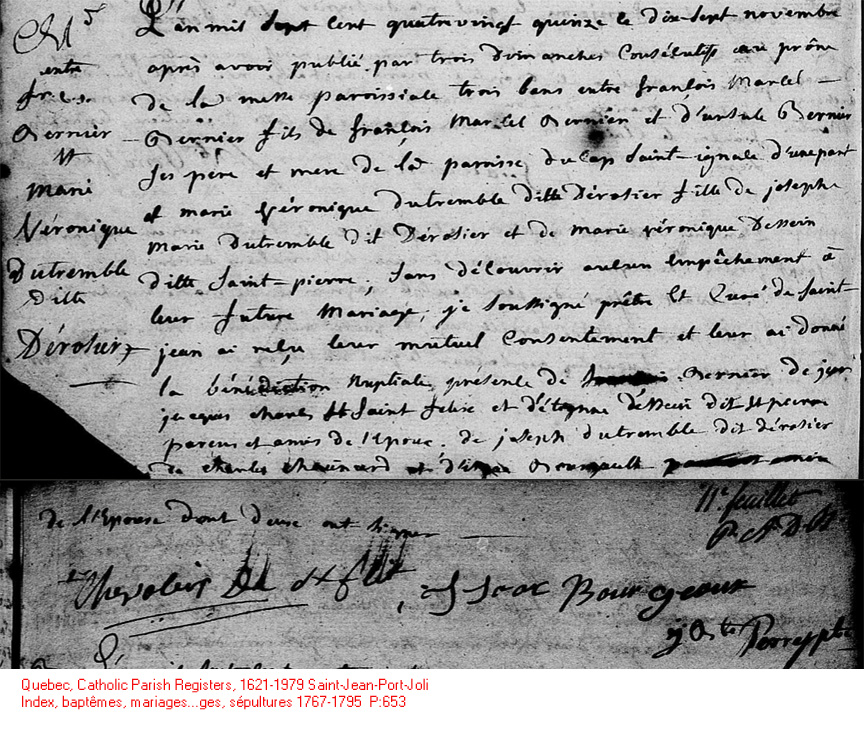 M
entre
frs
Bernier
et
marie
Véronique
Dutremble
ditte
Dérosier
L'an mil Sept Cent quatrevingt quinze le dix-Sept novembre
après avoir publié par trois Dimanches Consécutifs au prône
de la messe paroissiale trois bans entre françois Marcel
Bernier fils de françois Marcel Bernier et d'ursule Bernier
ses père et mere de la paroisse du Cap Saint-ignace d'unepart
et marie Véronique dutremble ditte Dérosier fille de joseph
marie Dutremble dit Dérosier et de marie véronique Dessein
ditte Saint-pierre, sans découvrir aucun Empêchement à
leur future Mariage, je soussigné prêtre Et Curé de Saint-
jean ai reçu leur mutuel Consentement et leur ai donné
la bénédiction Nuptiale présence de Bernier de
jacques charles St Saint felix et d'étienne desseïn dit St pierre
parens et amis de l'Epoux. de joseph dutremble dit dérosier
de charles chouinard et
de l'Epouse dont deux ont signer
11e feuillet
isaac Bourgeaux
Quebec, Catholic Parish Registers, 1621-1979 Saint-Jean-Port-Joli
Index, baptêmes, mariages...ges, sépultures 1767-1795 P:653